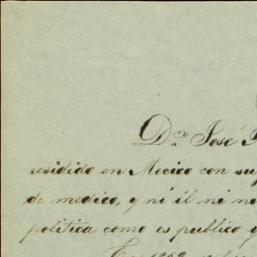 Dn. José
residido en Mexico con su
de medico, y ni él ni no
politica como es publico y
En 18